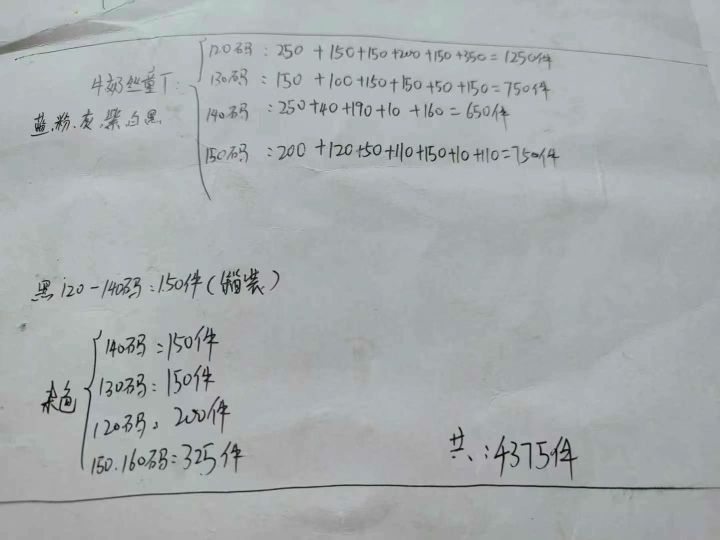 120码：250+150+150+200+150+350=1250件
牛奶丝童T： 130码：150+100+150+150+50+150=750件
蓝.粉.灰.紫.白.黑 140码：250+40+190+10+160=650件
150码：200+120+50+110+150+10+110=750件
黑120-140码：150件（箱装）
140码：150件
杂色 130码：150件
120码：200件
150.160码：325件
共：4375件